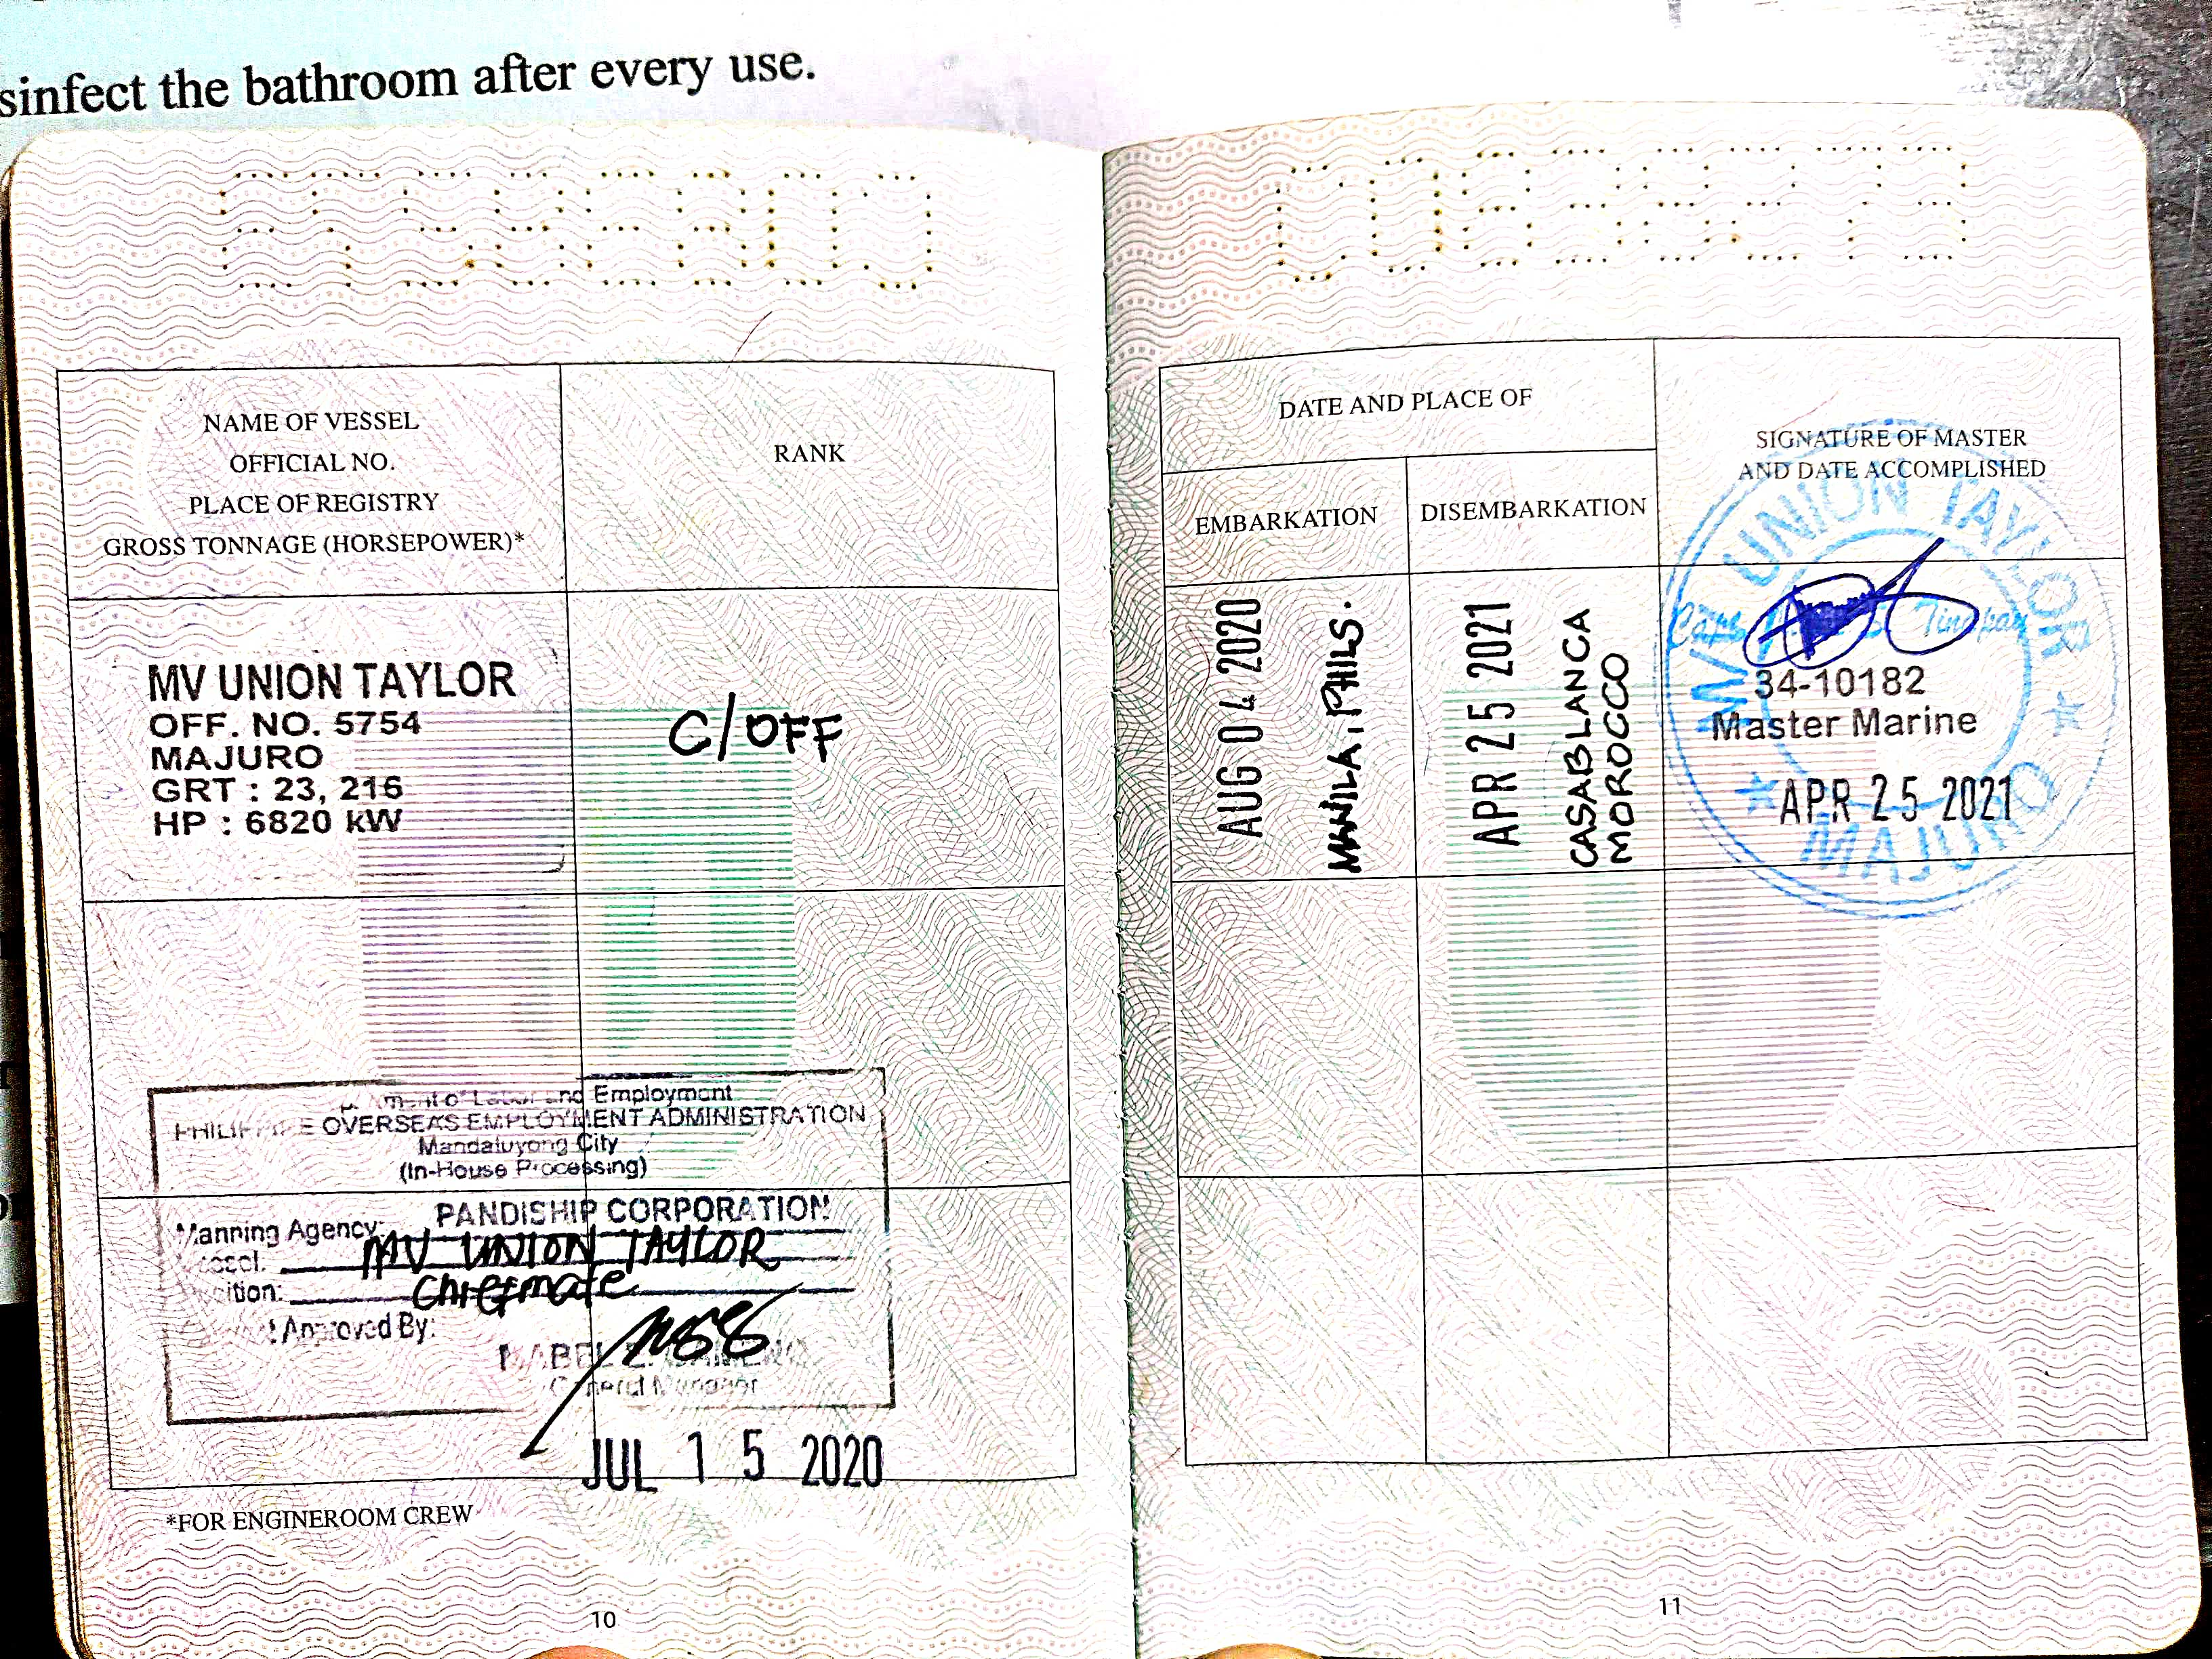 sinfect the bathroom after every use.
NAME OF VESSEL
OFFICIAL NO.
PLACE OF REGISTRY
GROSS TONNAGE (HORSEPOWER)*
RANK
MV UNION TAYLOR
OFF. NO. 5754
MAJURO
GRT : 23, 216
HP : 6820 kW
C/OFF
and Employment
OVERSEAS EMPLOYMENT ADMINISTRATION
Mandaluyong City
(In-House Processing)
Manning Agency: PANDISHIP CORPORATION
MV UNION TAYLOR
Chiefmate
Approved By:
General Manager
JUL 15 2020
*FOR ENGINEROOM CREW
10
DATE AND PLACE OF
EMBARKATION
DISEMBARKATION
SIGNATURE OF MASTER
AND DATE ACCOMPLISHED
AUG 04 2020
MANILA, PHILS.
APR 25 2021
CASABLANCA
MOROCCO
MV UNION TAYLOR
Capt.
34-10182
Master Marine
APR 25 2021
MAJURO
11